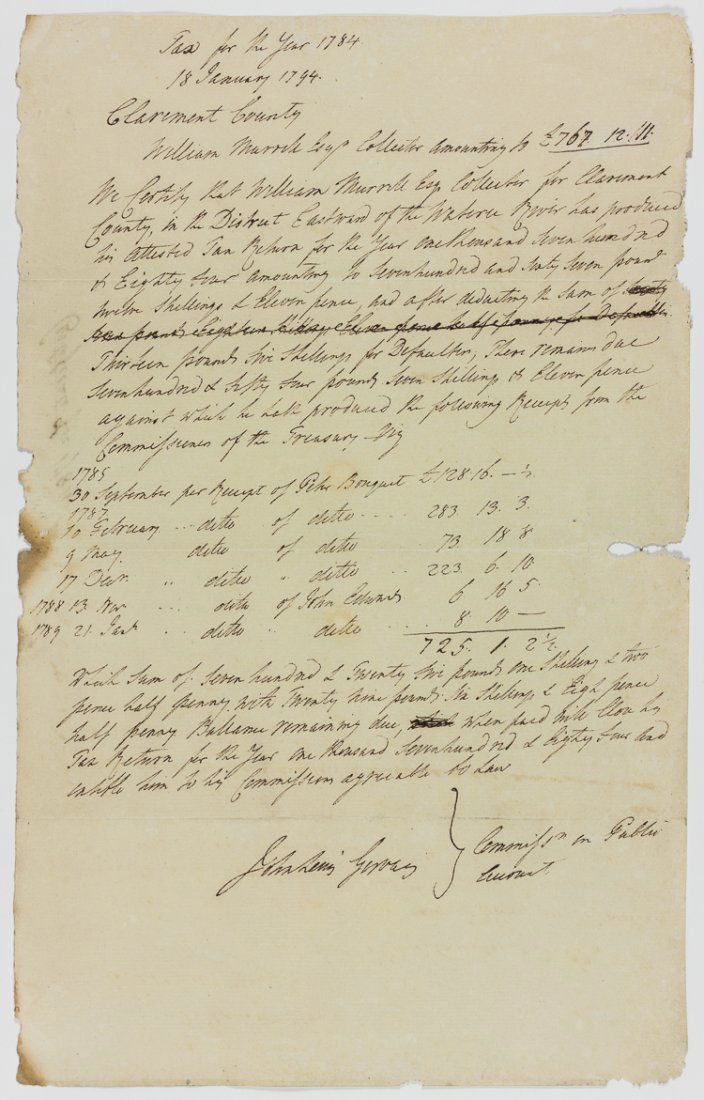 Tax for the Year 1784
18 January 1794.
Claremont County
William Murrell Esqr Collector amounting to £767 12. 11.
We Certify that William Murrell Esq Collector for Claremont
County, in the District Eastward of the Wateree River has produced
his attested Tax Return for the Year one thousand seven hundred
& Eighty four amounting to sevenhundred and sixty seven pound
twelve Shillings & Eleven pence, and after deducting the Sum of
pounds Eighteen Shillings Eleven pence half penny for Defaulters
Thirteen pounds five Shellings for Defaulters, There remains due
Sevenhundred & fifty four pounds Seven Shellings & Eleven pence
against which he hath produced the following Receipts from the
Commissioners of the Treasury Viz
1785
30 September per Receipt of Peter Bouquet £128 16. — ½.
1787.
10 February ... ditto of ditto .... 283. 13. 3.
9 May. ditto of ditto 73. 18 8
17 Decr. " ditto " ditto ... 223. 6. 10
1788 13 ... ditto of John Edwards 6 16 5.
1789 21. Jany .. ditto .. ditto .. 8 10 —
725. 1. 2½.
Which Sum of Seven hundred & Twenty five pounds one Shelling & two
pence half penny with Twenty nine pounds Six Shellings & Eigh pence
half penny Ballance remaining due, when paid will Close his
Tax Return for the Year one thousand Sevenhundred & Eighty four and
entitle him to his Commissions agreeable to Law
John Lewis Gervais } Commissrn on Public
Accounts